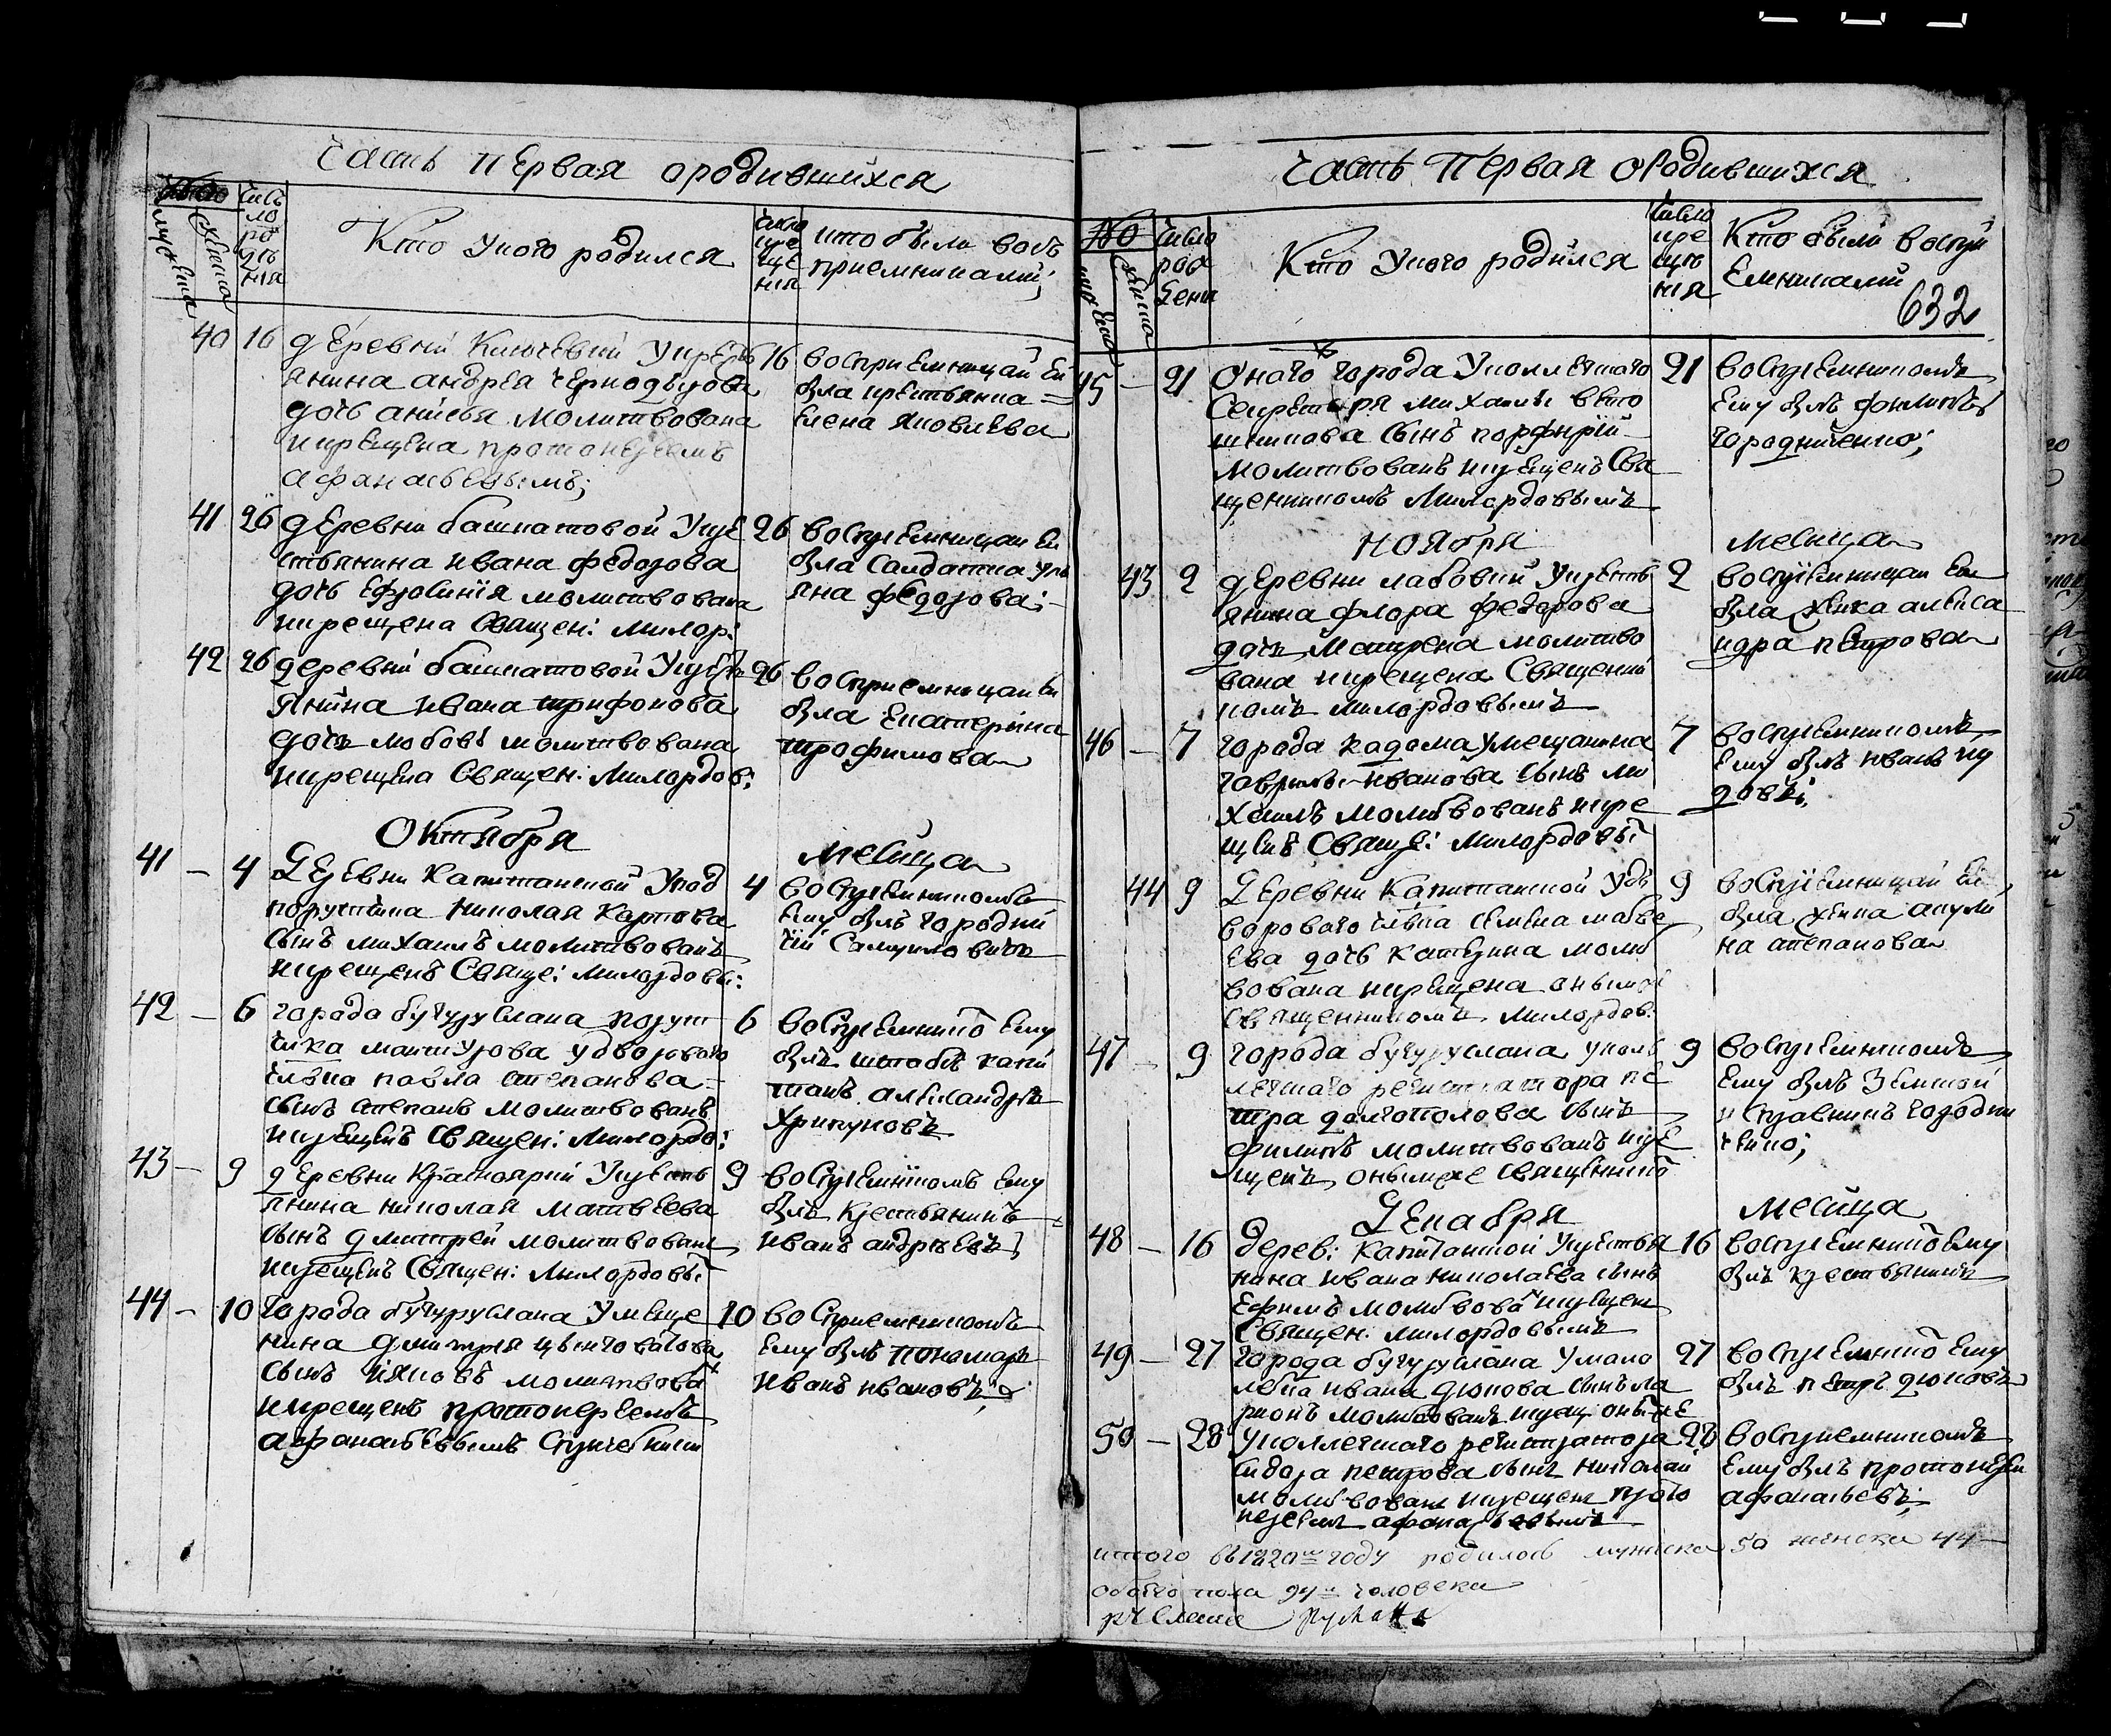 Часть первая ородившихся
мужеска
женска
Число рождения
Кто укого родился
Число крещения
кто были восприемниками;
40 16 деревни Ключевки укресть
янина андрея
дочь анисья молитвована
икрещена протоиереемъ
афанасьевымъ;
16 восприемницай ей
была крестьянка
елена яковлева
41 26 деревни башкатовой укре
стьянина ивана федорова
дочь ефросиния молитвована
икрещена священ: милор:
26 восприемницаи еи
была салдатка улья
яна федорова;
42 26 деревни башкатовой укресть
янина ивана трифонова
дочь любовь молитвована
икрещена священ: милордов:
26 восприемницаи еи
была екатерина
трофимова
Октября
месица
41 – 4 деревни капитанской упод
порутчика николая карпова
сынъ михаилъ молитвованъ
икрещенъ свяще: милордовы:
4 восприемникомъ
ему былъ городни
чий самуиловичь
42 – 6 города бугуруслана порут
чика мансурова удворового
павла степанова
сынъ степанъ молитвованъ
икрещенъ священ: милордо:
6 восприемнико ему
былъ штабъ капи
танъ александръ
хрипуновъ
43 – 9 деревни красноярки укресть
янина николая матвеева
сынъ дмитрей молитвованъ
икрещенъ священ: милордовы
9 восприемникомъ ему
былъ крестьянинъ
иванъ андреевъ;
44 – 10 города бугуруслана умеща
нина дмитрея
сынъ иаковъ молитвова
икрещенъ протоиереемъ
афанасьевымъ
10 восприемникомъ
ему былъ пономарь
иванъ ивановъ;
Часть Первая ородившихся
№
женска
Число рождени
Кто укого родился
Число крещения
Кто были воспри
емниками
632
45 – 21 онаго города уколлежкаго
секретаря михаилы
сынъ порфирий
молитвованъ икрещенъ свя
щенникомъ милордовымъ
21 восприемникомъ
ему былъ филипъ
городниченко;
ноября
месица
43 2 деревни лабовки укресть
янина флора федорова
дочь матрена молитво
вана икрещена священни
комъ милордовымъ
2 восприемницаи еи
была женка алекса
ндра петрова
46 – 7 города кадома умещанина
гаврилы иванова сынъ ми
хаилъ молитвованъ икре
щенъ свяще: милордовы
7 восприемникомъ
ему былъ иванъ
44 9 деревни капитанской удь
ворового семена матве
ева дочь катерина моли
вована икрещена онымже
священникомъ милордов:
9 восприемницай еи
была женка акули
на степанова
47 – 9 города бугуруслана укол
лежкаго регистратора пе
тра долгополова сынъ
филипъ молитвованъ икре
щенъ онымже священнико
9 восприемникомъ
ему былъ земской
исправникъ городни
ченко;
декабря
месица
48 – 16 дерев: капитанской укрестья
нина ивана николаева сынъ
ефимъ молитвова икрещен
священ: милордовымъ
16 восприемнико ему
былъ крестьянинъ
49 – 27 города бугуруслана умало
летка ивана дюкова сынъ ла
рионъ молитвованъ икрещ онымже
27 восприемнико ему
былъ петръ дюковъ
50 – 28 уколлежкаго регистратора
сидора петрова сынъ николай
молитвованъ икрещенъ прото
иереемъ афанасьевымъ
28 восприемникомъ
ему былъ протоиерей
афанасьевъ;
итого въ1820мъ году родилось мужска 50 женска 44
обоего пола 94 человека